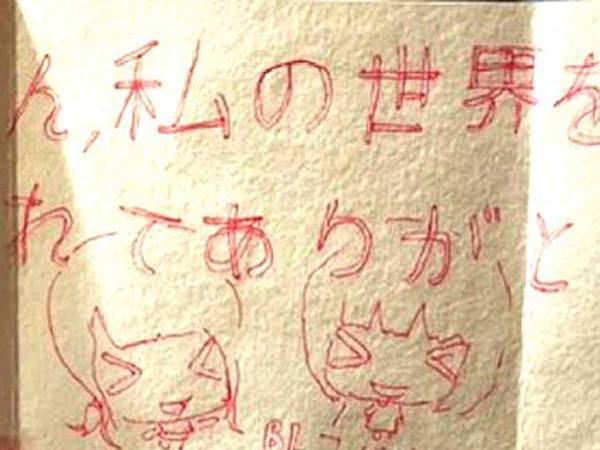 ん,私の世界を
れてありがと
BL